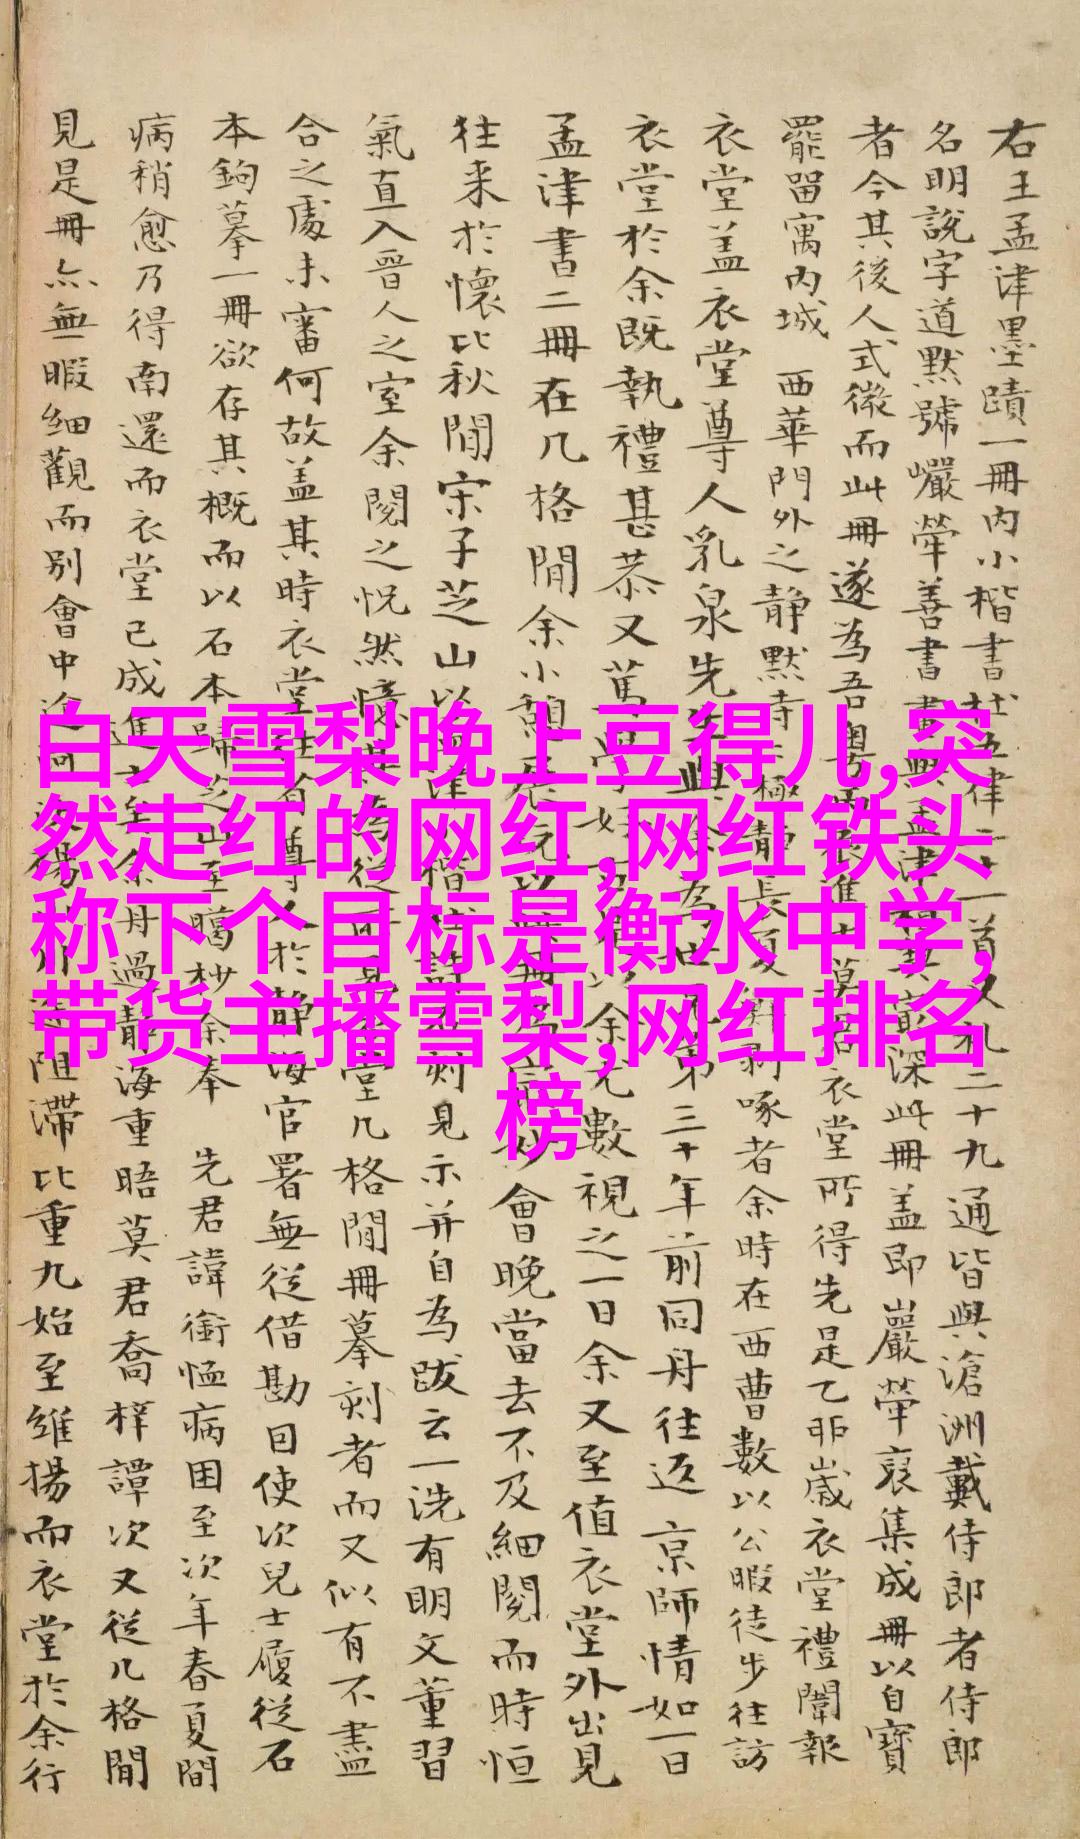 右王孟津墨蹟一冊內小楷書
二十九通皆與滄洲戴侍郎者侍郎
名明說字道默號巖犖善書
深此冊盖即巖犖裒集成冊以自寶
者今其後人式微而此冊遂為吾粵
衣堂所得先是乙卯歲衣堂禮闈報
罷留寓內城 西華門外之静默寺
啄者余時在西曹數以公暇徒步往訪
衣堂盖衣堂尊人乳泉先生
三十年前同舟往返 京師情如一日
衣堂於余既執禮甚恭又篤
數視之一日余又至值衣堂外出見
孟津書二冊在几格間余小
會晚當去不及細閱而時恒
往来於懷比秋間宋子芝山以
見示并自為跋云一洗有明文董習
氣直入晉人之室余閱之怳然憶
堂几格間冊摹刻者而又似有不盡
合之處未審何故盖其時衣堂
於静海官署無從借勘因使次兒士履從石
本鉤摹一冊欲存其概而以石本歸
先君諱銜恤病困至次年春夏間
病稍愈乃得南還而衣堂已成進士
舟過静海重晤莫君喬梓譚次又從几格間
見是冊亦無暇細觀而别會中途
阻滯比重九始至維揚而衣堂於余行
白天雪梨晚上豆得儿,突
然走红的网红,网红铁头
称下个目标是衡水中学,
带货主播雪梨,网红排名
榜